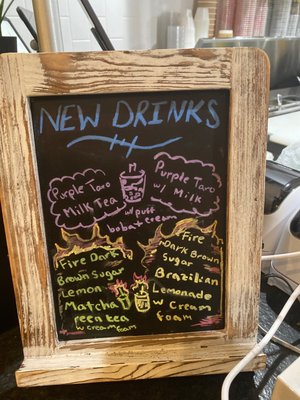 NEW DRINKS
Purple Taro
Milk Tea
Purple Taro
w/ Milk
w/ puff
boba + cream
Fire Dark
Brown Sugar
Lemon
Matcha
reen tea
w Cream foam
Fire
Dark Brown
Sugar
Brazilian
Lemonade
w Cream
foam